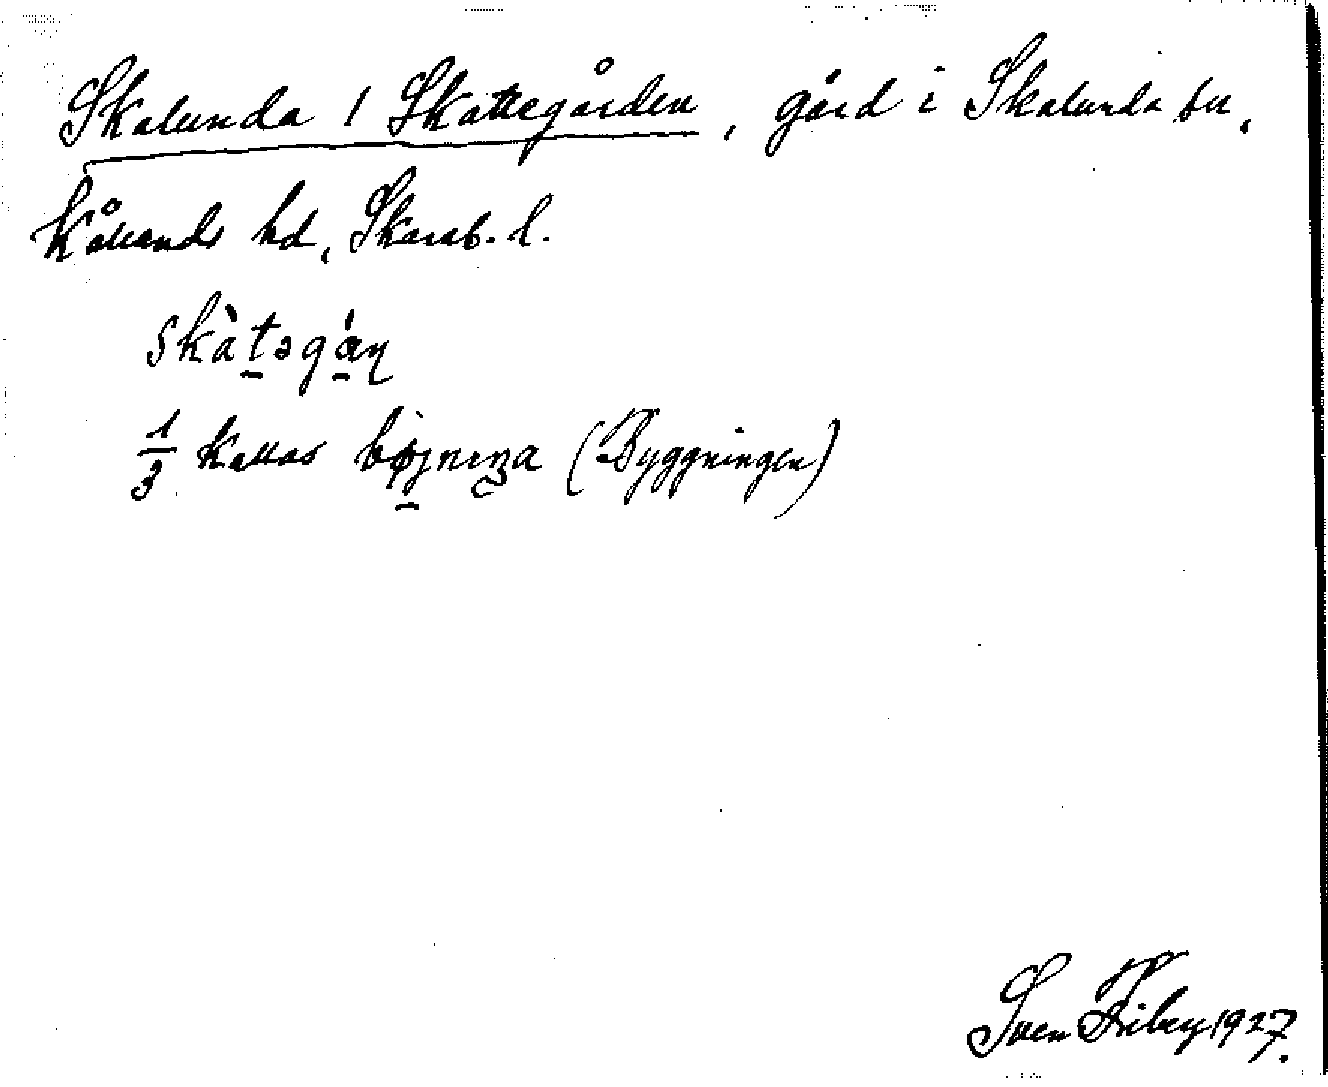 Skalunda 1 Skattegården, gård i Skalunda sn,
Kållands hd, Skarab. l.
skàtəgán
1/3 kallas (Byggningen)
Sven Friberg 1927.